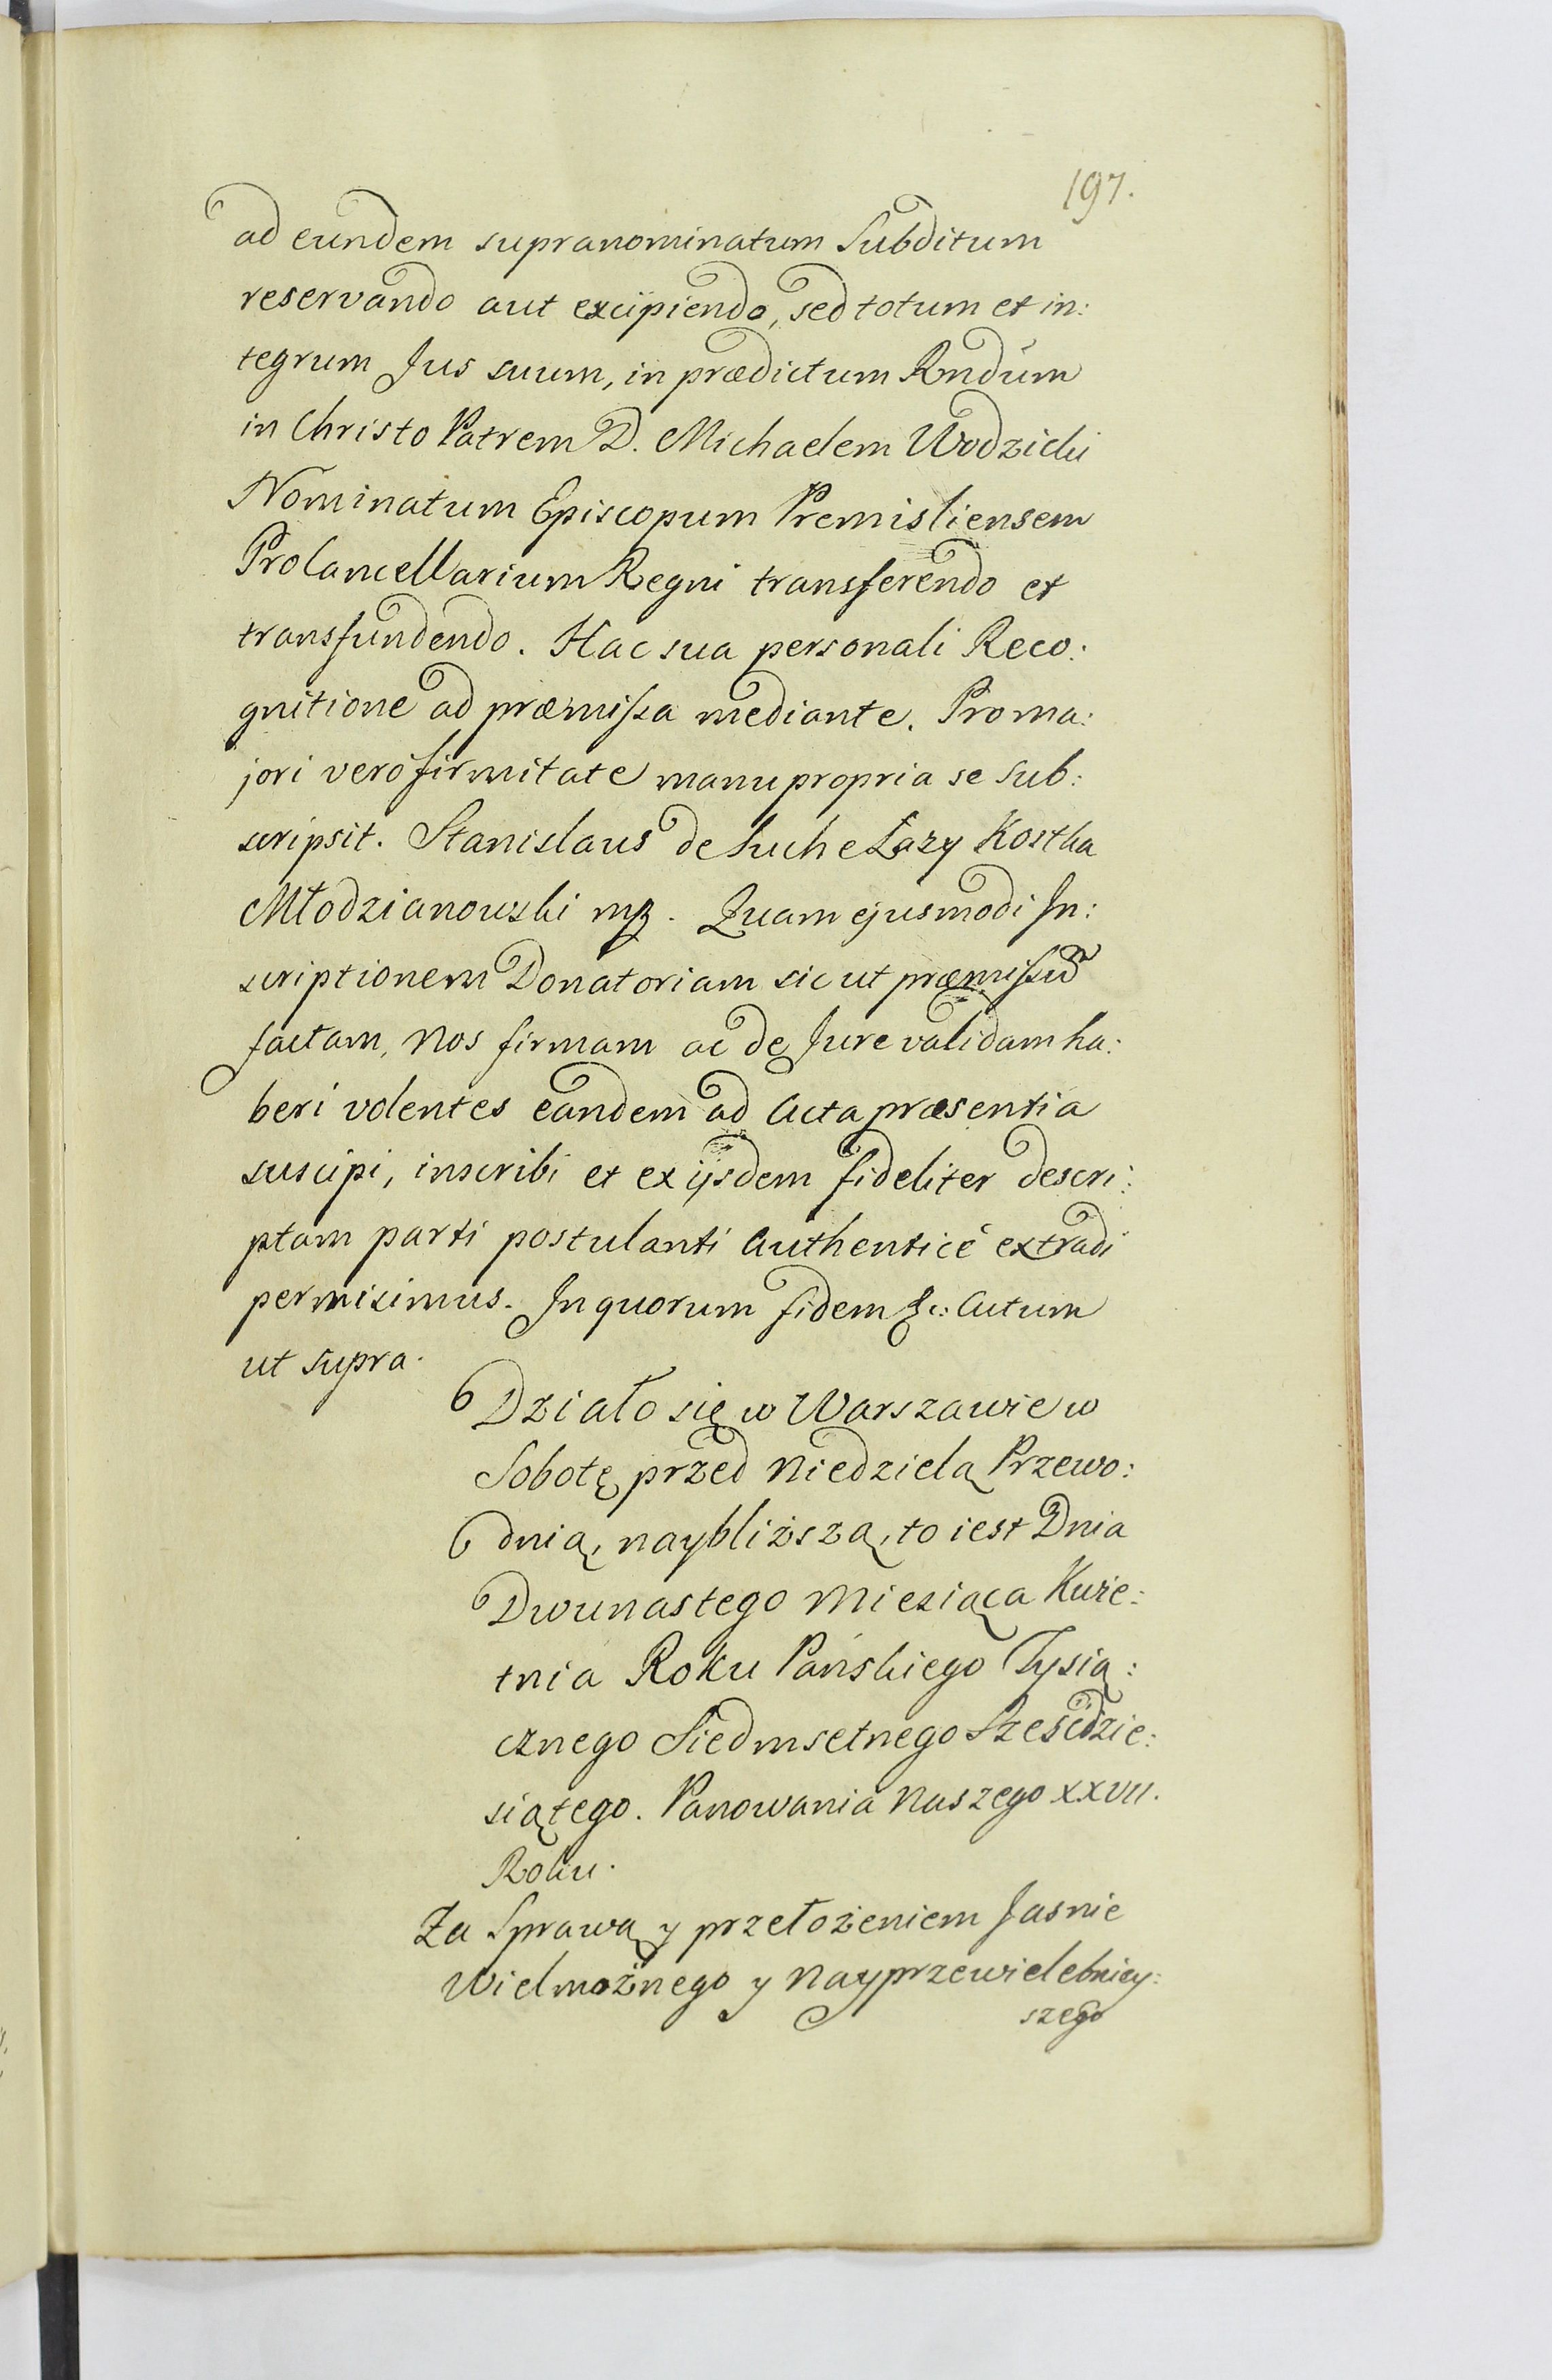 197.
ad eundem supranominatum Subditum
reservando aut excipiendo, sed totum et in:
tegrum Jus suum, in prædictum Rndum
in Christo Patrem D. Michaelem Wodzicki
Nominatum Episcopum Premisliensem
ProCancellarium Regni transferendo et
transfundendo. Hac sua personali Reco:
gnitione ad præmissa mediante. Pro ma:
jori verò firmitate manu propria se sub:
scripsit. Stanislaus de Suche Łazy Kostka
Młodzianowski mp. Quam ejusmodi In:
scriptionem Donatoriam sic ut præmissu
factam, Nos firmam ac de Jure validam ha:
beri volentes eandem ad Acta præsentia
suscipi, inscribi et ex ijsdem fideliter descri:
ptam parti postulanti Authenticè extradi
permisimus. In quorum fidem &c: Actum
ut supra.
Działo się w Warszawie w
Sobotę przed Niedzielą Przewo:
dnią, naybliższą, to iest Dnia
Dwunastego Miesiąca Kwie:
tnia Roku Pańskiego Tysią:
cznego Siedmsetnego Sześćdzie:
siątego. Panowania Naszego XXVII.
Roku.
Za Sprawą y przełożeniem Jasnie
Wielmożnego y Nayprzewielebniey:
szego